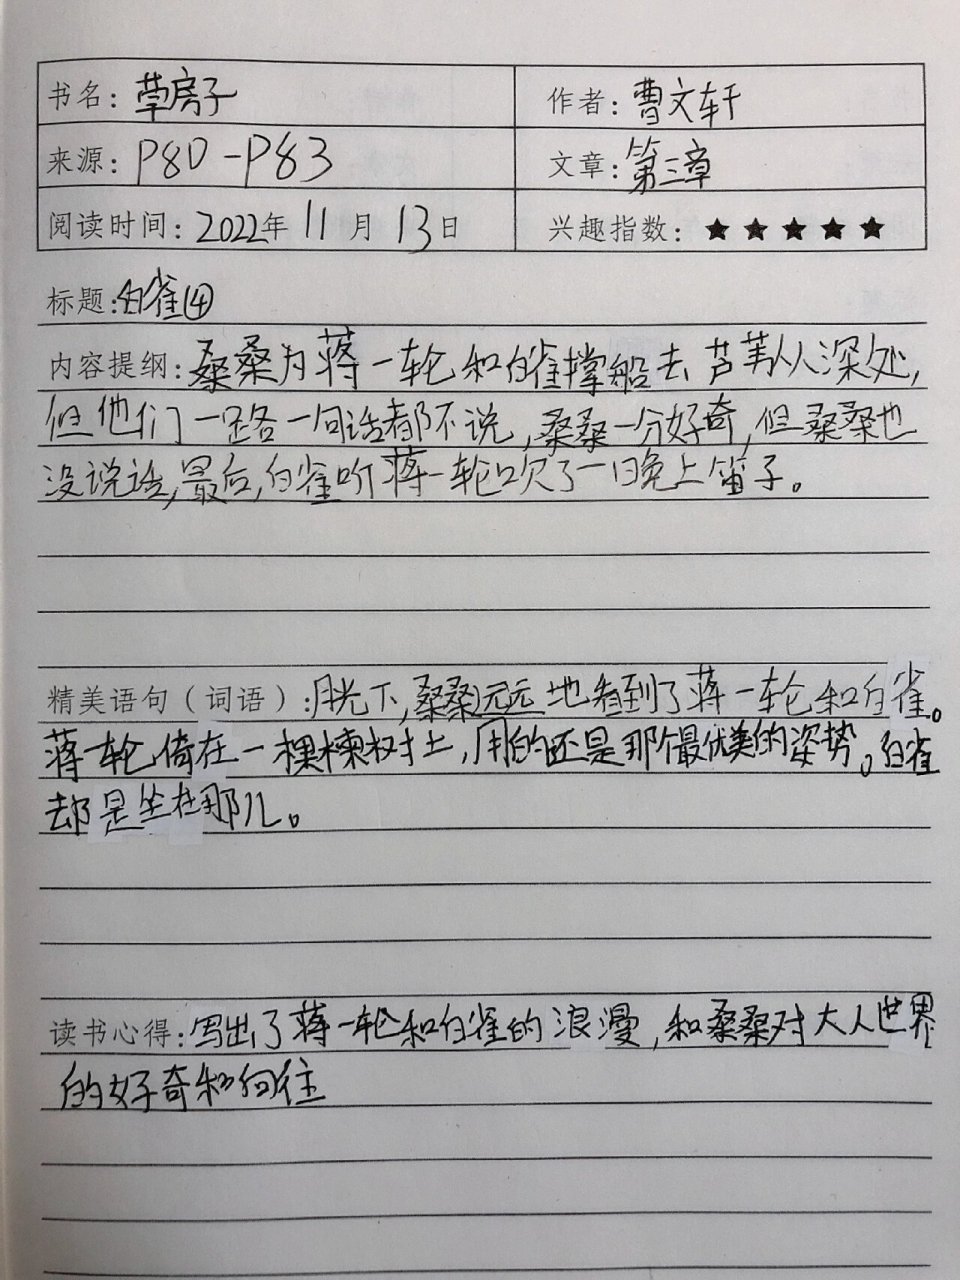 书名：草房子 作者：曹文轩
来源：P80-P83 文章：第三章
阅读时间：2022年 11 月 13 日 兴趣指数：★★★★★
标题：白雀④
内容提纲：桑桑为蒋一轮和白雀撑船去芦苇从深处，
但他们一路一句话都不说，桑桑一分好奇，但桑桑也
没说话，最后，白雀听蒋一轮吹了一晚上笛子。
精美语句（词语）：月光下，桑桑远远地看到了蒋一轮和白雀。
蒋一轮倚在一棵楝树上，用的还是那个最优美的姿势。白雀
却是坐在那儿。
读书心得：写出了蒋一轮和白雀的浪漫，和桑桑对大人世界
的好奇和向往